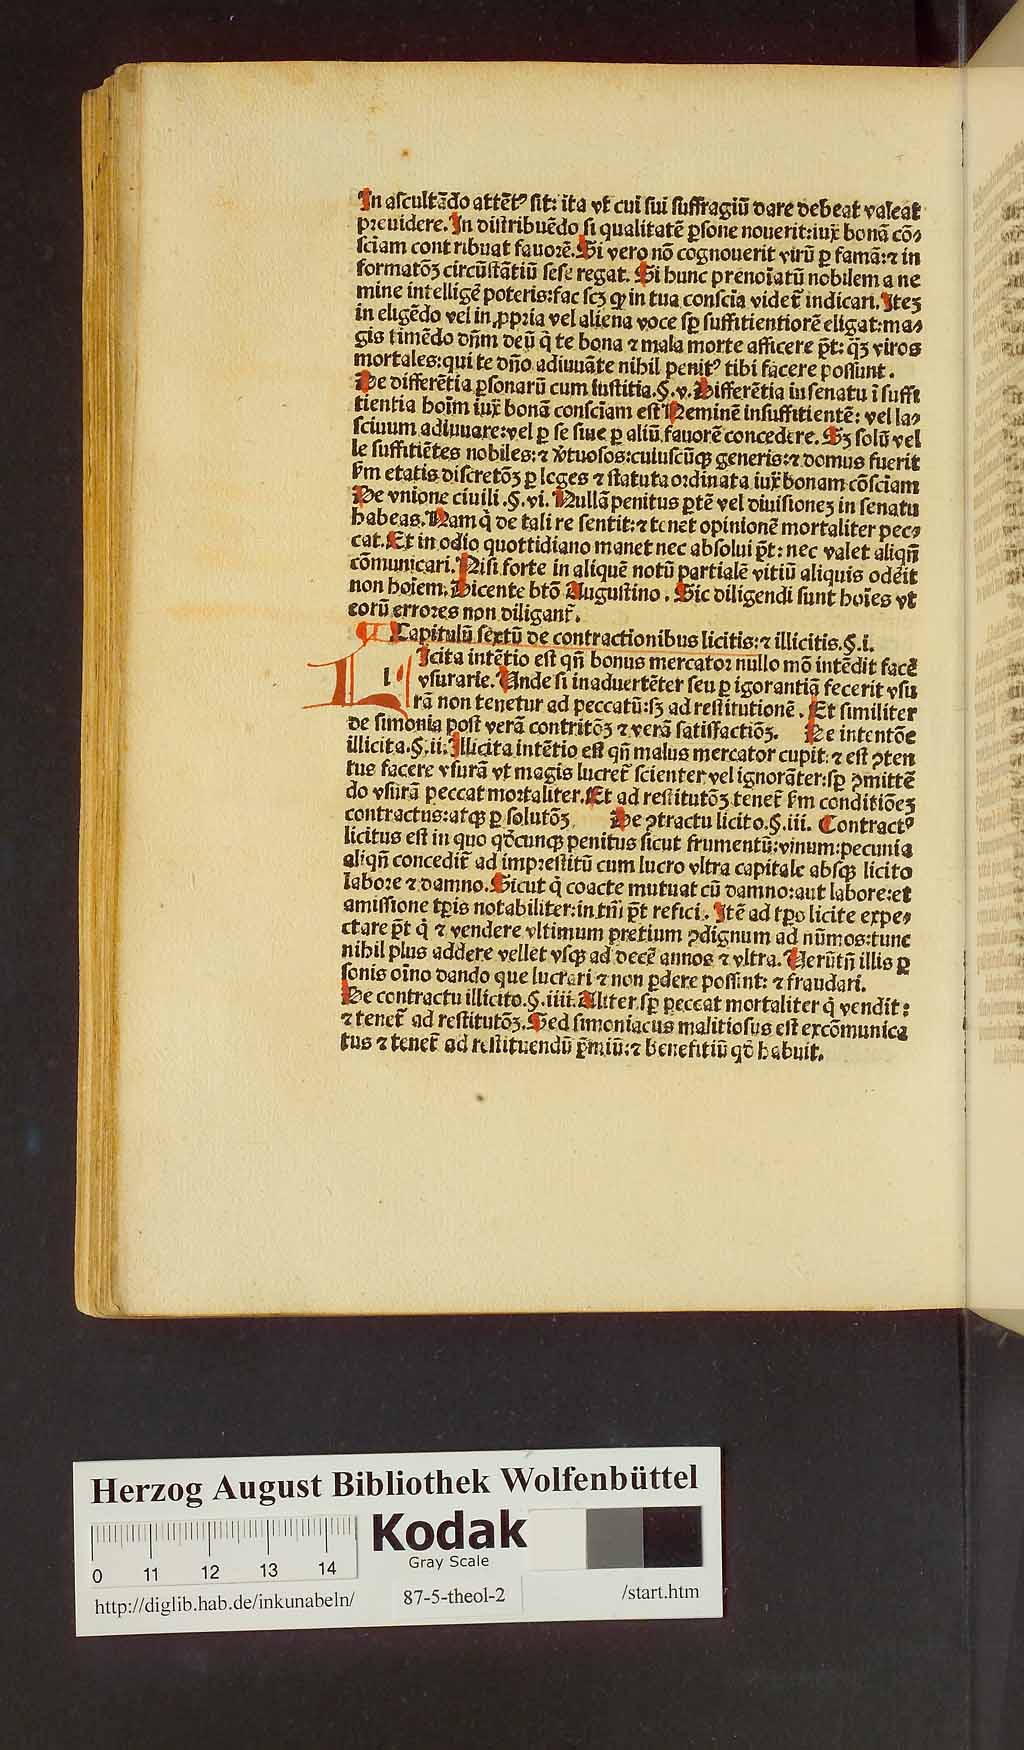 In ascultãdo attẽtꝰ sit: ita vt cui sui suffragiũ dare debeat valeat
preuidere. In distribuẽdo si qualitatẽ ꝑsone nouerit: iux bonã cõ⸗
sciam cont ribuat fauorẽ. Si vero nõ cognouerit virũ ꝑ famã: ⁊ in
formatõꝫ circũstãtiũ sese regat. Si hunc prenoĩatũ nobilem a ne
mine intelligẽ poteris: fac scꝫ ꝙ in tua conscia videt̃ indicari. Iteꝫ
in eligẽdo vel in ꝓpria vel aliena voce sꝑ suffitientiorẽ eligat: ma⸗
gis timẽdo dñm deũ q̇ te bona ⁊ mala morte afficere p̃t: q̃ꝫ viros
mortales: qui te dño adiuuãte nihil penitꝰ tibi facere possunt.
De differẽtia ꝑsonarũ cum iustitia. §. v. Differẽtia in senatu ĩ suffi
tientia hoĩm iux bonã consciam est Neminẽ insuffitientẽ: vel la⸗
sciuum adiuuare: vel ꝑ se siue ꝑ aliũ fauorẽ concedere. Sꝫ solũ vel
le suffitiẽtes nobiles: ⁊ ṽtuosos: cuiuscũqꝫ generis: ⁊ domus fuerit
ẜm etatis discretõꝫ ꝑ leges ⁊ statuta ordinata iux bonam cõsciam
De vnione ciuili. §. vi. Nullã penitus ꝑtẽ vel diuisioneꝫ in senatu
habeas. Nam q̇ de tali re sentit: ⁊ tenet opinionẽ mortaliter pec⸗
cat. Et in odio quottidiano manet nec absolui p̃t: nec valet aliqñ
cõmunicari. Nisi forte in aliquẽ notũ partialẽ vitiũ aliquis odẽit
non hoiem. Dicente btõ Augustino. Sic diligendi sunt hoĩes vt
eorũ errores non diligant̃.
Capitulũ sextũ de contractionibus licitis: ⁊ illicitis. §. i.
l Icita intẽtio est qñ bonus mercator nullo mõ intẽdit facẽ
vsurarie. Unde si inaduertẽter seu ꝑ igorantiã fecerit vsu
rã non tenetur ad peccatũ: sꝫ ad restitutionẽ. Et similiter
de simonia post verã contritõꝫ ⁊ verã satisfactiõꝫ. De intentõe
illicita. §. ii. Illicita intẽtio est qñ malus mercator cupit: ⁊ est ꝯten
tus facere vsurã vt magis lucret̃ scienter vel ignorãter: sꝑ ꝯmittẽ
do vsurã peccat mortaliter. Et ad restitutõꝫ tenet̃ ẜm conditiõeꝫ
contractus: atqꝫ ꝑ solutõꝫ De ꝯtractu licito. §. iii. Contractꝰ
licitus est in quo qd̃cunqꝫ penitus sicut frumentũ: vinum: pecunia
aliqñ concedit̃ ad imprestitũ cum lucro vltra capitale absqꝫ licito
labore ⁊ damno. Sicut q̇ coacte mutuat cũ damno: aut labore: et
amissione tꝑis notabiliter: in tm̃ p̃t refici. Itẽ ad tꝑs licite expe⸗
ctare p̃t q̇ ⁊ vendere vltimum pretium ꝯdignum ad nũmos: tunc
nihil plus addere vellet vsqꝫ ad decẽ annos ⁊ vltra. Verũtñ illis ꝑ
sonis oĩno dando que lucrari ⁊ non ꝑdere possint: ⁊ fraudari.
De contractu illicito. §. iiii. Aliter sꝑ peccat mortaliter q̇ vendit:
⁊ tenet̃ ad restitutõꝫ. Sed simoniacus malitiosus est excõmunica
tus ⁊ tenet̃ ad restituendũ p̃miũ: ⁊ benefitiũ qd̃ habuit.
Herzog August Bibliothek Wolfenbüttel
Kodak
Gray Scale
0 11 12 13 14
http://diglib.hab.de/inkunabeln/ 87-5-theol-2 /start.htm